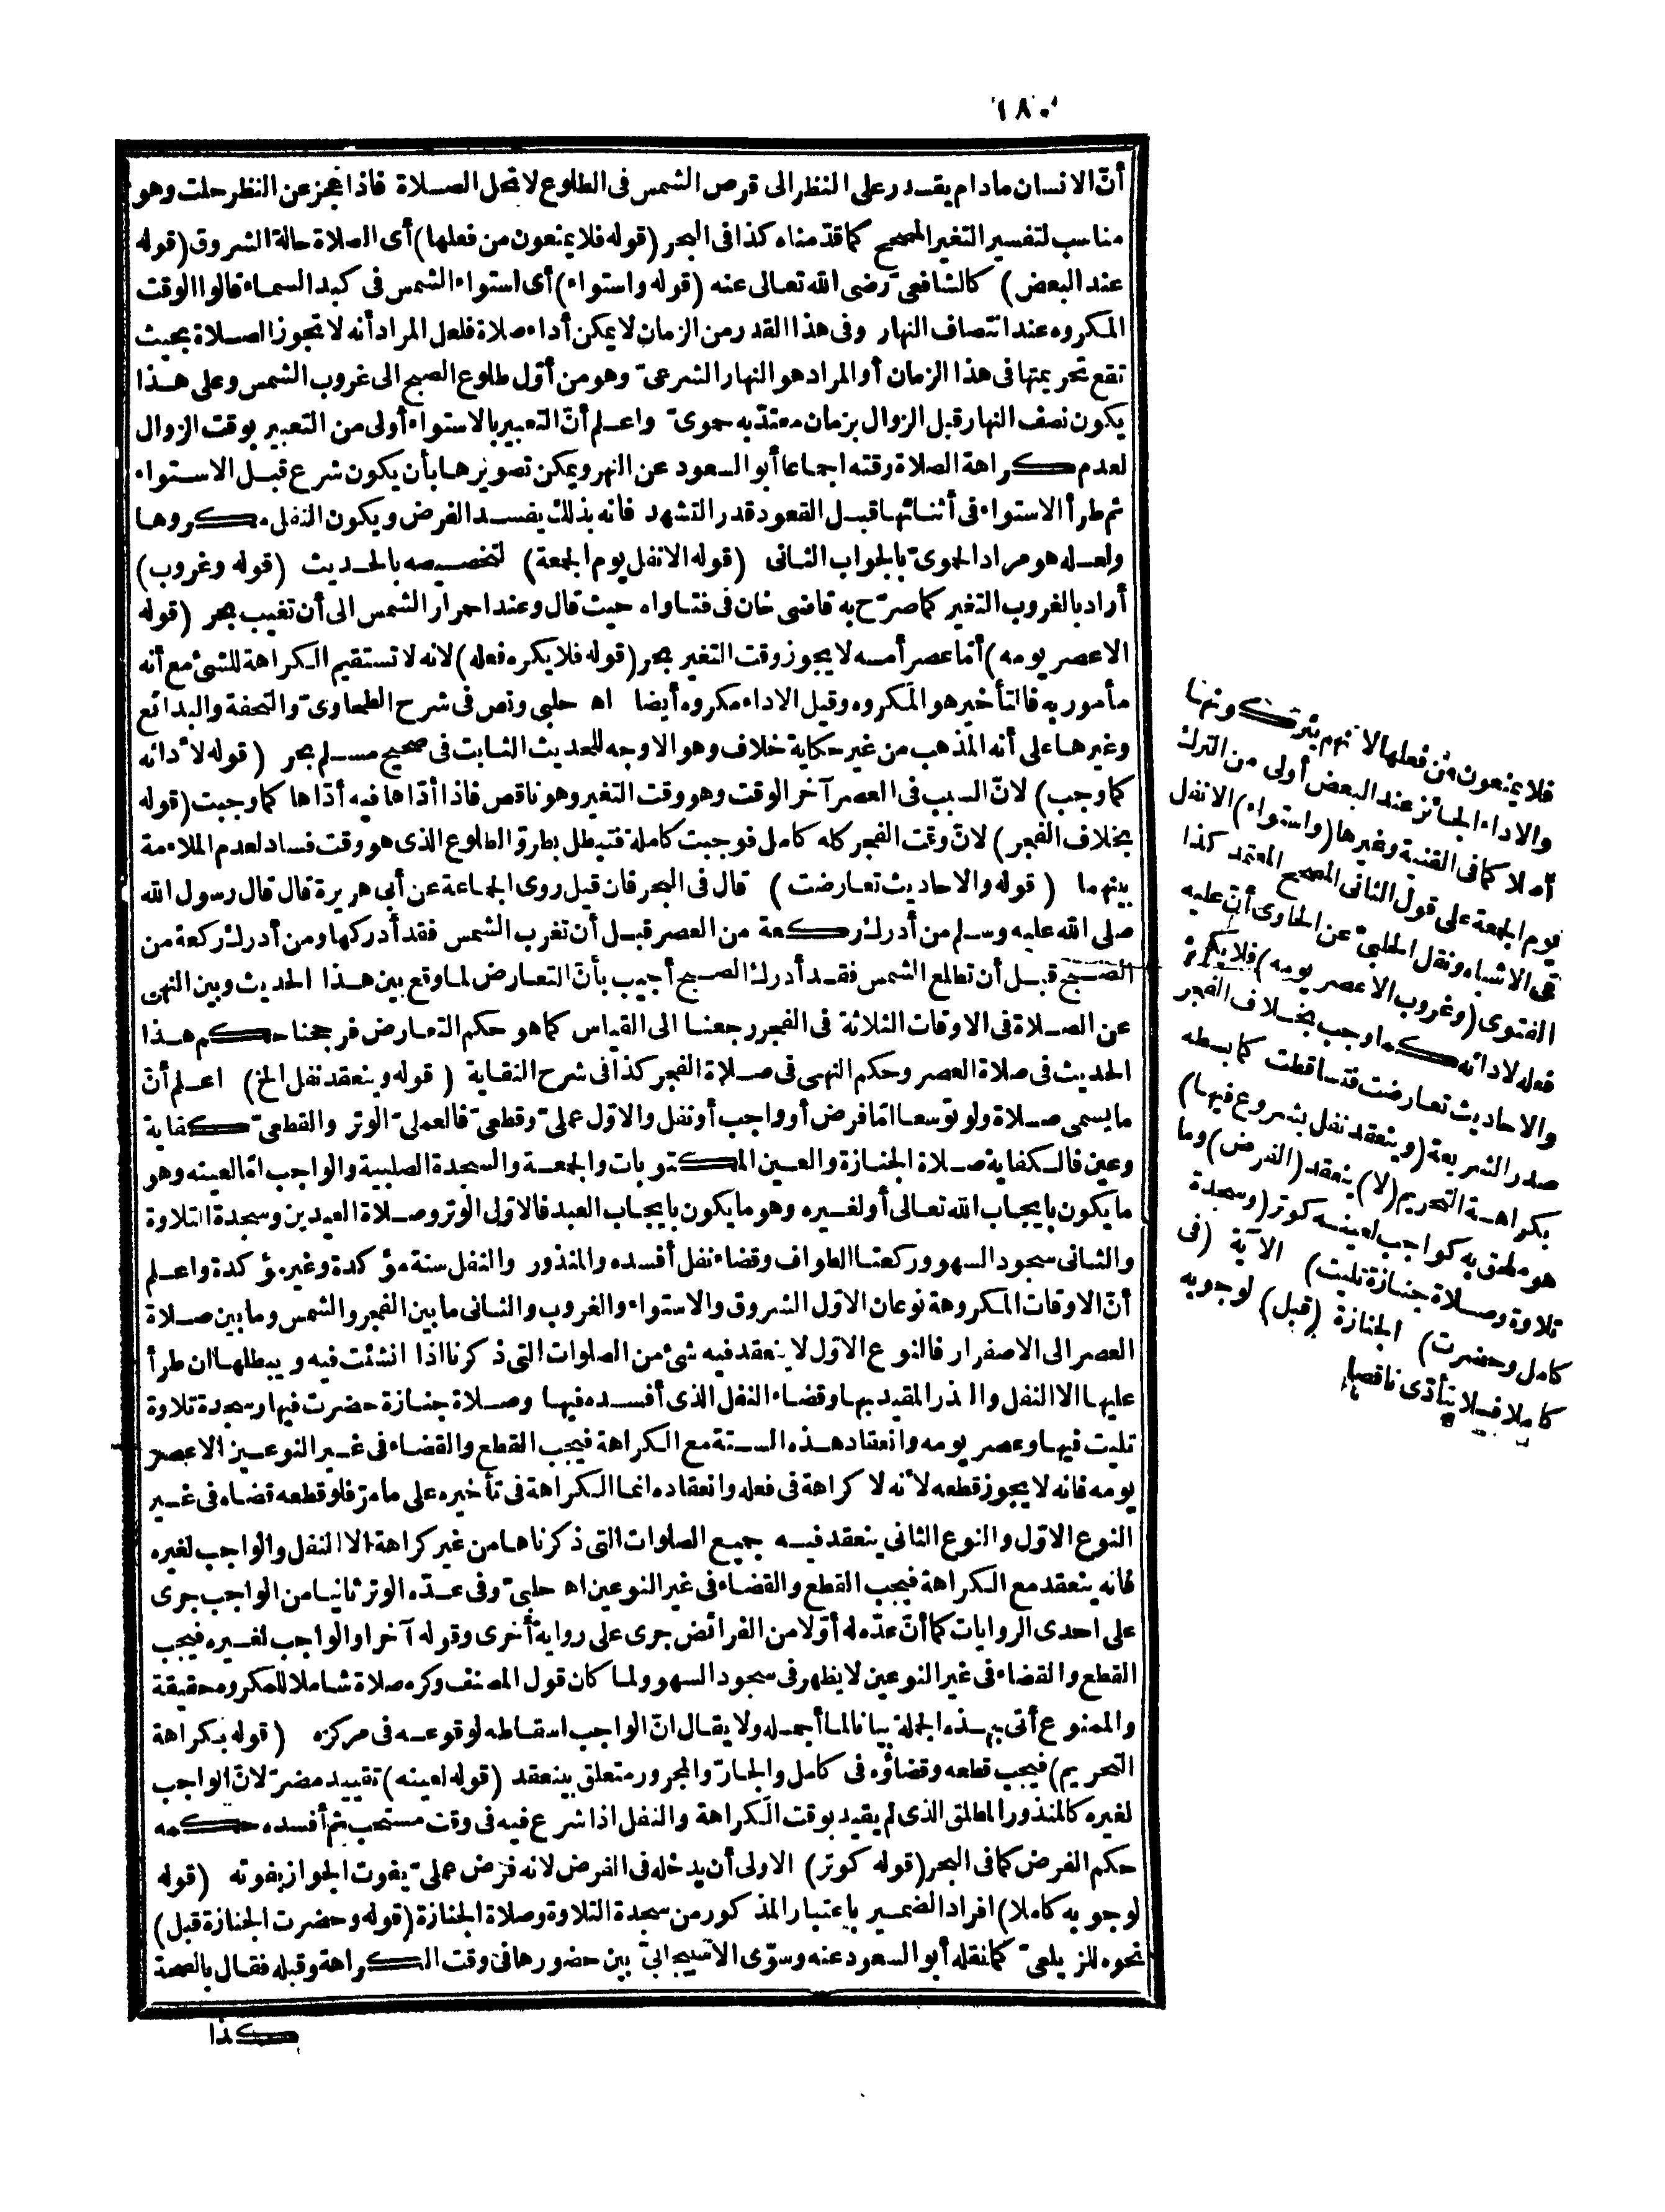 ١٨٠
أنّ الانسان مادام يقدر على النظر الى قرص الشمس فى الطلوع لا تحل الصلاة فاذا عجز عن النظر حلت وهو
مناسب لتفسير التغير المصحح كما قدّمناه كذا فى البحر (قوله فلا يمنعون من فعلها) أى الصلاة حالة الشروق (قوله
عند البعض) كالشافعىّ رضى الله تعالى عنه (قوله واستواء) أى استواء الشمس فى كبد السماء قالوا الوقت
المكروه عند انتصاف النهار وفى هذا القدر من الزمان لا يمكن أداء صلاة فلعل المراد أنه لا تجوز الصلاة بحيث
تقع تحريمتها فى هذا الزمان أو المراد هو النهار الشرعىّ وهو من أوّل طلوع الصبح الى غروب الشمس وعلى هذا
يكون نصف النهار قبل الزوال بزمان معتدّ به حموىّ واعلم أنّ التعبير بالاستواء أولى من التعبير بوقت الزوال
لعدم كراهة الصلاة وقته اجماعا أبو السعود عن النهر ويمكن تصويرها بأن يكون شرع قبل الاستواء
ثم طرأ الاستواء فى أثنائها قبل القعود قدر التشهد فانه بذلك يفسد الفرض ويكون النفل مكروها
ولعله هو مراد الحموىّ بالجواب الثانى (قوله الا نفل يوم الجمعة) لتخصيصه بالحديث (قوله وغروب)
أراد بالغروب التغير كما صرّح به قاضى خان فى فتاواه حيث قال وعند احمرار الشمس الى أن تغيب بحر (قوله
الا عصر يومه) أمّا عصر أمسه لا يجوز وقت التغير بحر (قوله فلا يكره فعله) لانه لا تستقيم الكراهة للشئ مع أنه
مأمور به فالتأخير هو المكروه وقيل الاداء مكروه أيضا اه حلبى ونص فى شرح الطحاوىّ والتحفة والبدائع
وغيرها على أنه المذهب من غير حكاية خلاف وهو الاوجه للحديث الثابت فى صحيح مسلم بحر (قوله لأدائه
كما وجب) لانّ السبب فى العصر آخر الوقت وهو وقت التغير وهو ناقص فاذا أدّاها فيه أدّاها كما وجبت (قوله
بخلاف الفجر) لانّ وقت الفجر كله كامل فوجبت كاملة فتبطل بطروّ الطلوع الذى هو وقت فساد لعدم الملاءمة
بينهما (قوله والاحاديث تعارضت) قال فى البحر فان قيل روى الجماعة عن أبى هريرة قال قال رسول الله
صلى الله عليه وسلم من أدرك ركعة من العصر قبل أن تغرب الشمس فقد أدركها ومن أدرك ركعة من
الصبح قبل أن تطلع الشمس فقد أدرك الصبح أجيب بأنّ التعارض لما وقع بين هذا الحديث وبين النهى
عن الصلاة فى الاوقات الثلاثة فى الفجر رجعنا الى القياس كما هو حكم التعارض فرجحنا حكم هذا
الحديث فى صلاة العصر وحكم النهى فى صلاة الفجر كذا فى شرح النقاية (قوله وينعقد نفل الخ) اعلم أنّ
ما يسمى صلاة ولو توسعا امّا فرض أو واجب أو نفل والاوّل عملىّ وقطعىّ فالعملىّ الوتر والقطعىّ كفاية
وعين فالكفاية صلاة الجنازة والعين المكتوبات والجمعة والسجدة الصلبية والواجب امّا لعينه وهو
ما يكون بايجاب الله تعالى أو لغيره وهو ما يكون بايجاب العبد فالاوّل الوتر وصلاة العيدين وسجدة التلاوة
والثانى سجود السهو وركعتا الطواف وقضاء نفل أفسده والمنذور والنفل سنة مؤكدة وغير مؤكدة واعلم
أنّ الاوقات المكروهة نوعان الاوّل الشروق والاستواء والغروب والثانى ما بين الفجر والشمس وما بين صلاة
العصر الى الاصفرار فالنوع الاوّل لا ينعقد فيه شئ من الصلوات التى ذكرنا اذا انشئت فيه ويبطلها ان طرأ
عليها الا النفل والنذر المقيد بها وقضاء النفل الذى أفسده فيها وصلاة جنازة حضرت فيها وسجدة تلاوة
تليت فيها وعصر يومه وانعقاد هذه الستة مع الكراهة فيجب القطع والقضاء فى غير النوعين الا عصر
يومه فانه لا يجوز قطعه لأنه لا كراهة فى فعله وانعقاده انما الكراهة فى تأخيره على ما مرّ فلو قطعه قضاه فى غير
النوع الاوّل والنوع الثانى ينعقد فيه جميع الصلوات التى ذكرناها من غير كراهة الا النفل والواجب لغيره
فانه ينعقد مع الكراهة فيجب القطع والقضاء فى غير النوعين اه حلبىّ وفى عدّه الوتر ثانيا من الواجب جرى
على احدى الروايات كما أنّ عدّه له أوّلا من الفرائض جرى على رواية أخرى وقوله آخرا والواجب لغيره فيجب
القطع والقضاء فى غير النوعين لا يظهر فى سجود السهو ولما كان قول المصنف وكره صلاة شاملا للمكروه حقيقة
والممنوع أتى بهذه الجملة بيانا لما أجمله ولا يقال انّ الواجب اسقاطه لوقوعه فى مركزه (قوله بكراهة
التحريم) فيجب قطعه وقضاؤه فى كامل والجارّ والمجرور متعلق بينعقد (قوله لعينه) تقييد مضرّ لانّ الواجب
لغيره كالمنذور المطلق الذى لم يقيد بوقت الكراهة والنفل اذا شرع فيه فى وقت مستحب ثم أفسده حكمه
حكم الفرض كما فى البحر (قوله كوتر) الاولى أن يدخله فى الفرض لانه فرض عملىّ يفوت الجواز بفوته (قوله
لوجوبه كاملا) افراد الضمير باعتبار المذكور من سجدة التلاوة وصلاة الجنازة (قوله وحضرت الجنازة قبل)
نحوه للزيلعىّ كما نقله أبو السعود عنه وسوّى الاسبيجابىّ بين حضورها فى وقت الكراهة وقبله فقال بالصحة
كذا
فلا يمنعون من فعلها لانهم يتركونها
والاداء الجائز عند البعض أولى من الترك
أصلا كما فى القنية وغيرها (واستواء) الا نفل
يوم الجمعة على قول الثانى المصحح المعتمد كذا
فى الاشباه ونقل الحلبىّ عن الحاوى أنّ عليه
الفتوى (وغروب الا عصر يومه) فلا يكره
فعله لادائه كما وجب بخلاف الفجر
والاحاديث تعارضت فتساقطت كما بسطه
صدر الشريعة (وينعقد نفل بشروع فيها)
بكراهة التحريم (لا) ينعقد (الفرض) وما
هو ملحق به كواجب لعينه كوتر (وسجدة
تلاوة وصلاة جنازة تليت) الآية (فى
كامل وحضرت) الجنازة (قبل) لوجوبه
كاملا فلا يتأدّى ناقصا